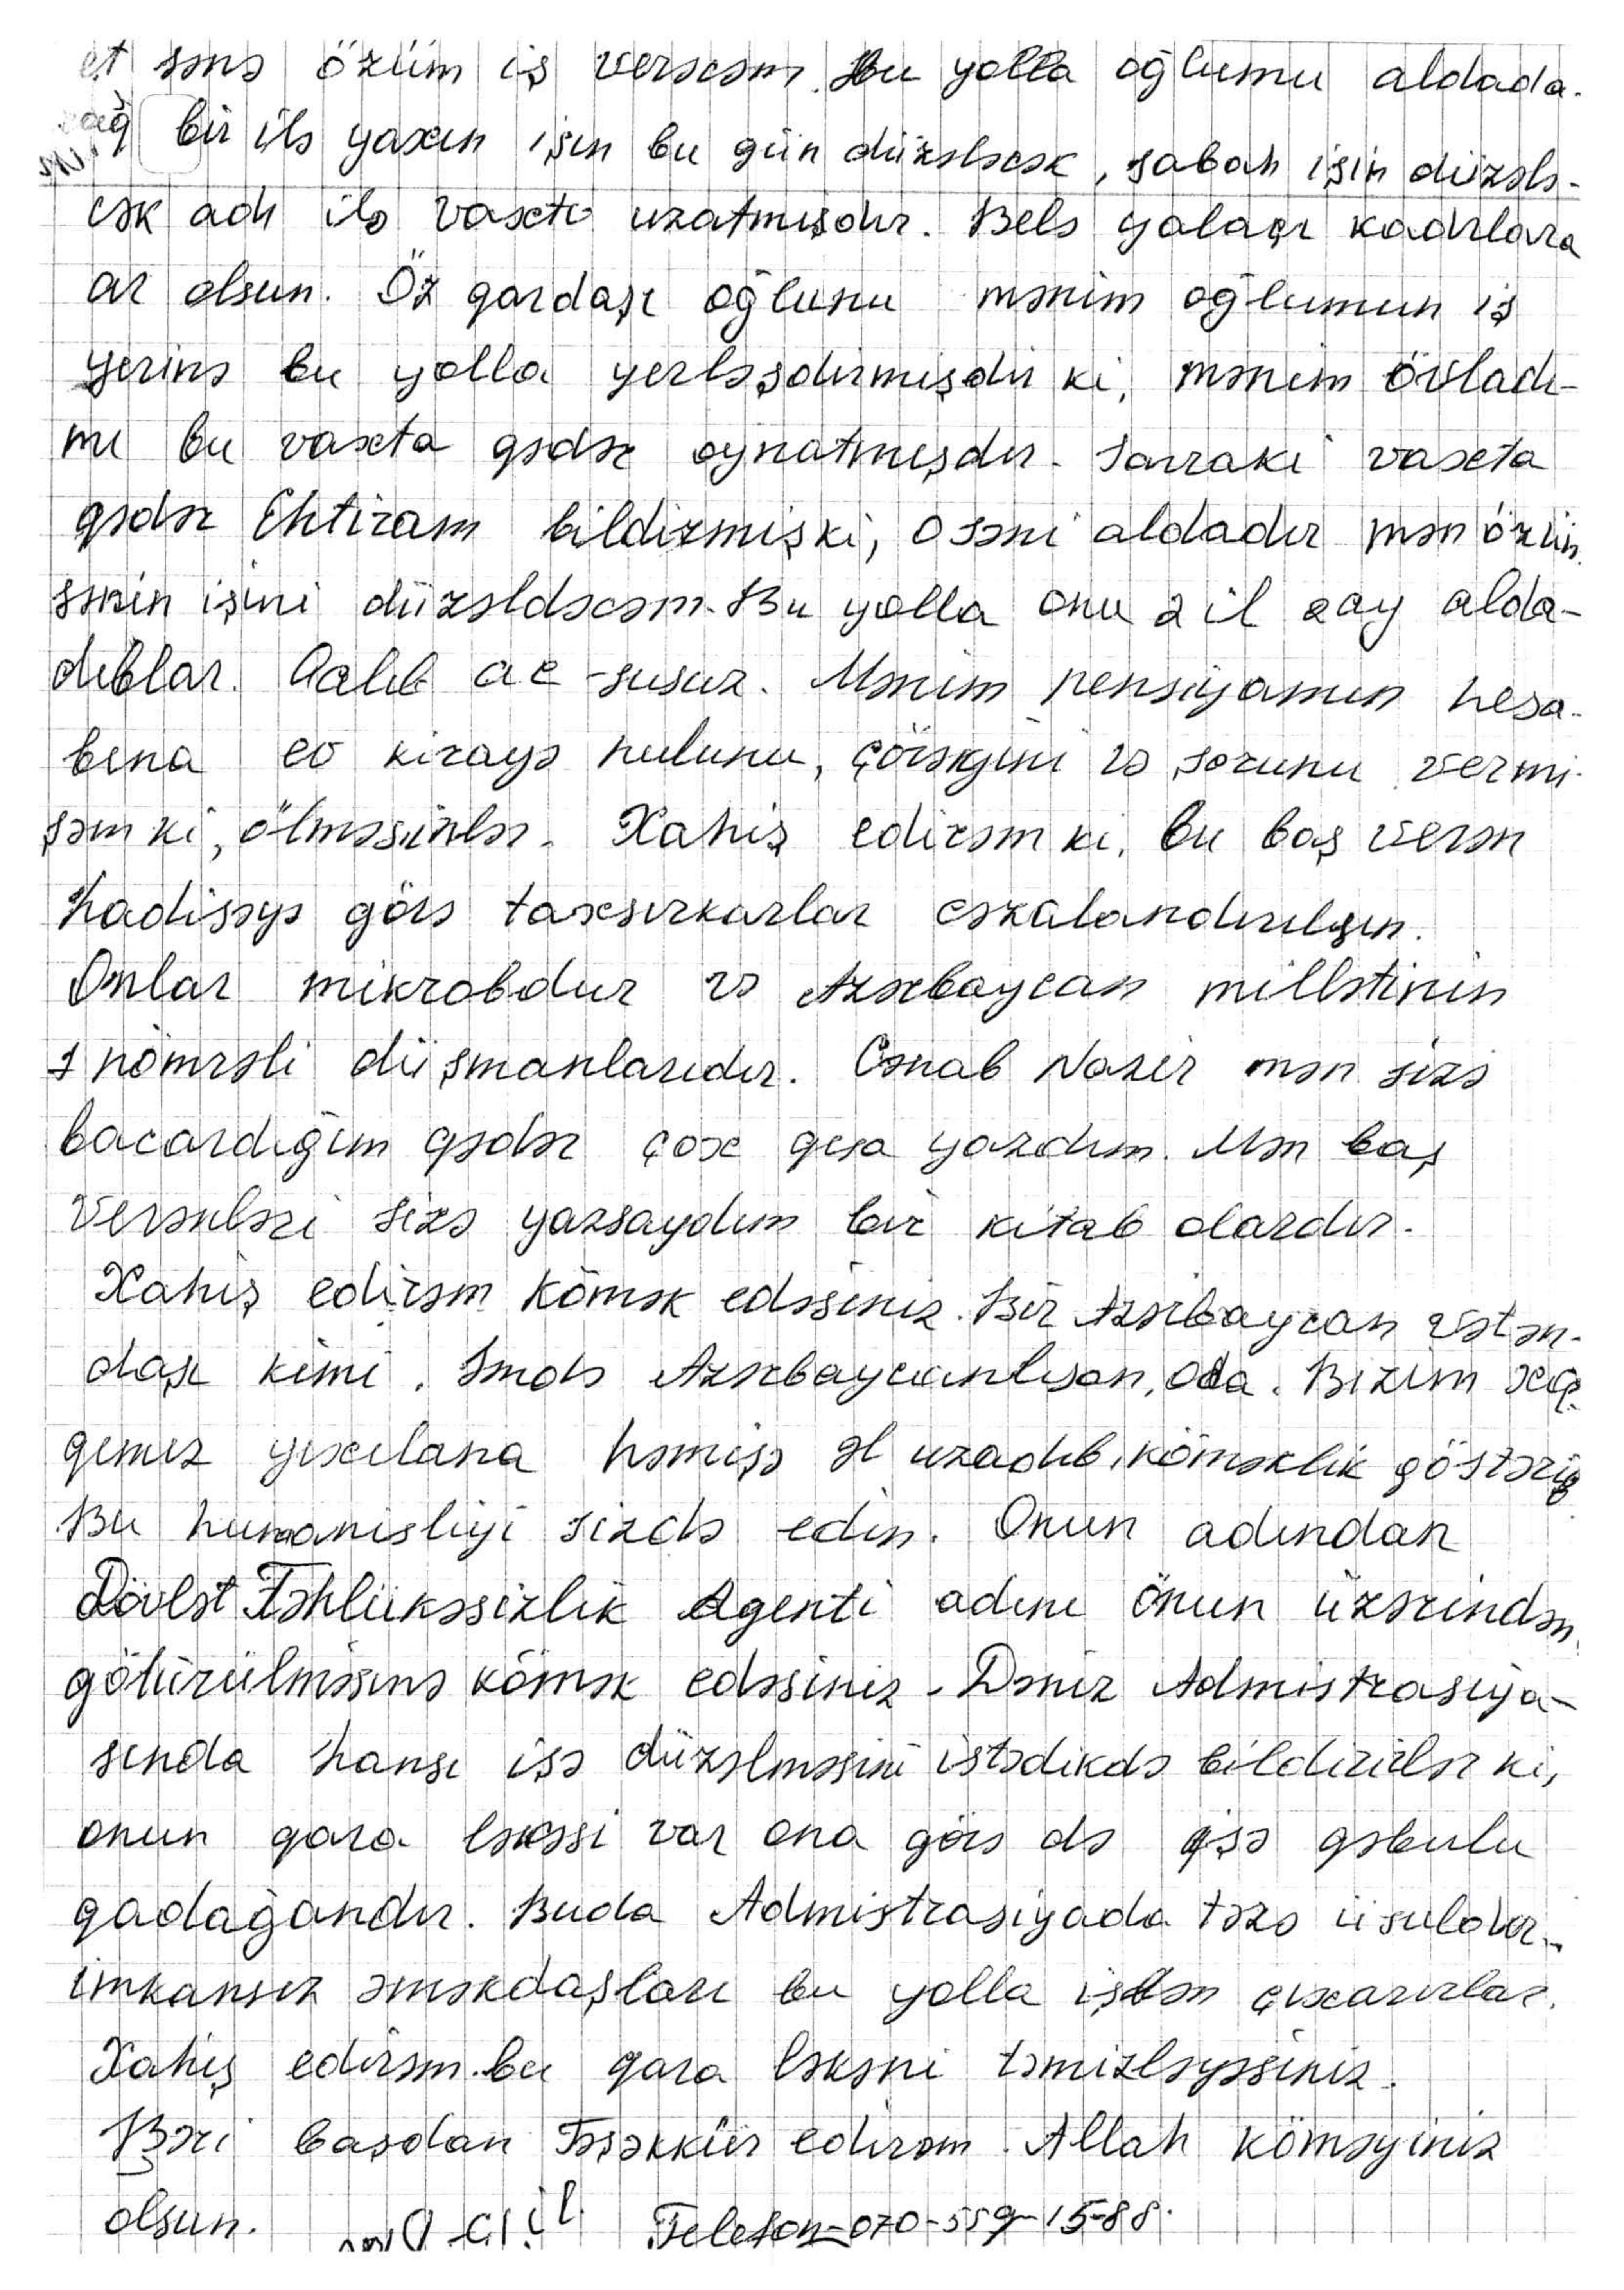 et sənə özüm iş verəcəm. Bu yolla oğlumu aldada-
bir ilə yaxın işin bu gün düzələcək, sabah işin düzələ-
cək adı ilə vaxtı uzatmışdır. Belə yalaçı kadrlara
ar olsun. Öz qardaşı oğlunu mənim oğlumun iş
yerinə bu yolla yerləşdirmişdir ki, mənim övladı-
mı bu vaxta qədər oynatmışdır. Sonraki vaxta
qədər Ehtiram bildirmiş ki, o səni aldadır mən özüm
sənin işini düzəldəcəm. Bu yolla onu 2 il 2 ay alda-
dıblar. Qalıb ac-susuz. Mənim pensiyamın hesa-
bına ev kirayə pulunu, çörəyini və sorunu vermi-
şəm ki, ölməsinlər. Xahiş edirəm ki, bu baş verən
hadisəyə görə taxsırkarlar cəzalandırılsın.
Onlar mikrobdur və Azərbaycan millətinin
1 nömrəli düşmanlarıdır. Cənab Nazir mən sizə
bacardığım qədər çox qısa yazdım. Mən baş
verənləri sizə yazsaydım bir kitab olardır.
Xahiş edirəm kömək edəsiniz. Bir Azərbaycan vətən-
daşı kimi. Səndə Azərbaycanlısan, oda. Bizim xal-
qımız yıxılana həmişə əl uzadıb, köməklik göstərib
Bu humanisliyi sizdə edin. Onun adından
Dövlət Təhlükəsizlik Agenti adını onun üzərindən
götürülməsinə kömək edəsiniz. Dəniz Admistrasiya-
sında hansı işə düzəlməsini istədikdə bildirirlər ki,
onun qara ləkəsi var ona görə də işə qəbulu
qadağandır. Buda Admistrasiyada təzə üsuldur.
imkansız əməkdaşları bu yolla işdən çıxarırlar.
Xahiş edirəm bu qara ləkəni təmizləyəsiniz.
Bəri başdan Təşəkkür edirəm. Allah köməyiniz
olsun. Telefon-070-559-15-88.